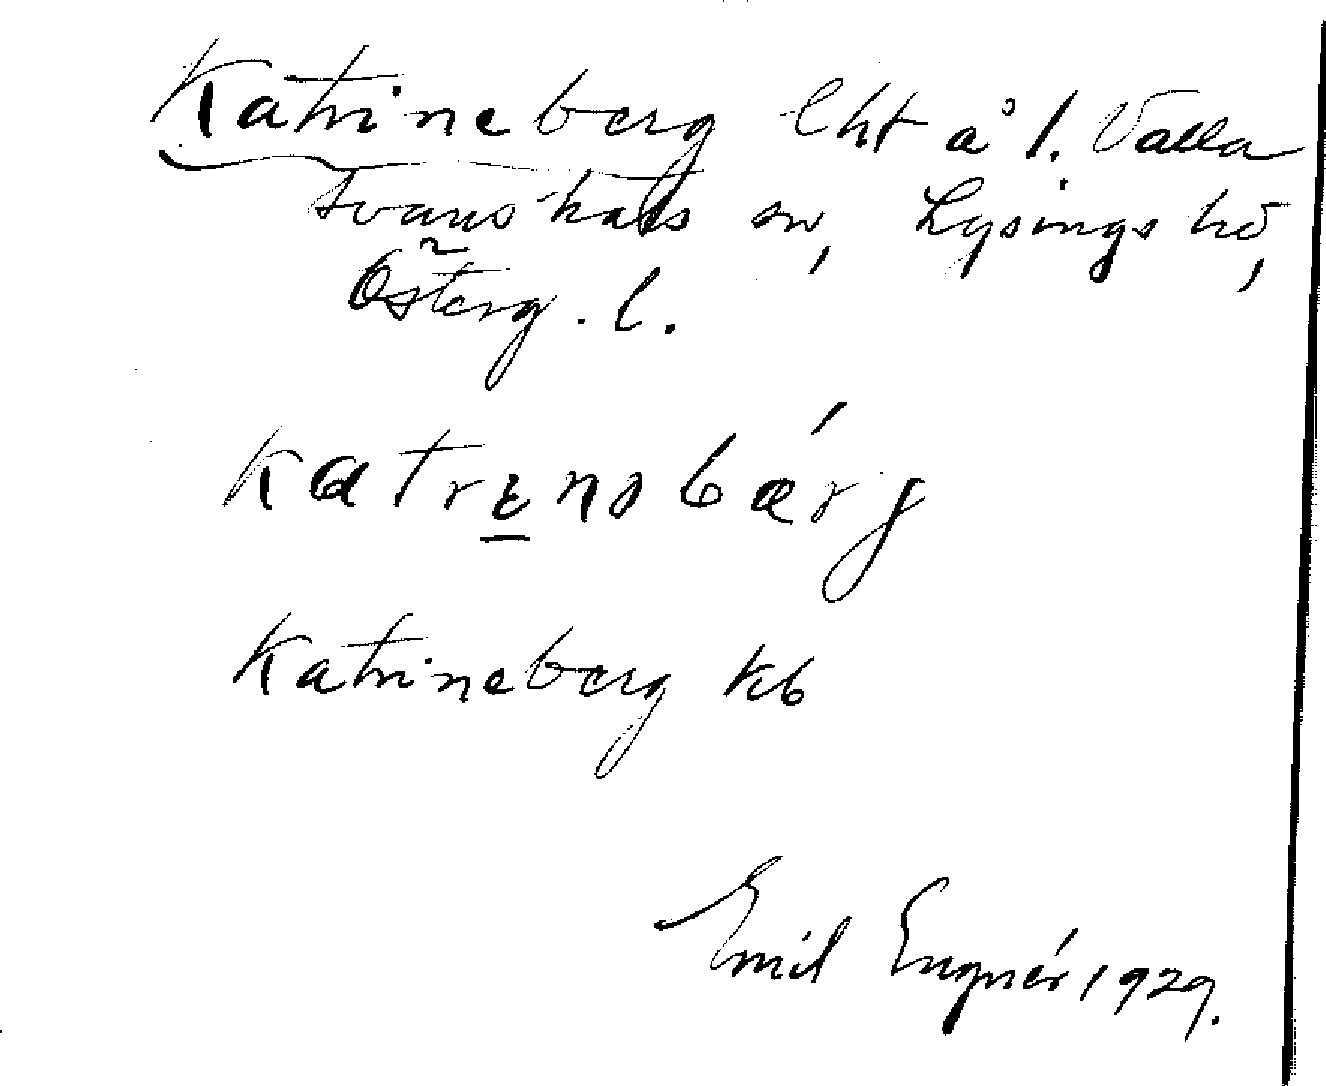 Katrineberg lht å l. Valla
Svanshals sn, Lysings hd,
Österg. l.
Katrɛnsbærg
Katrineberg kb
Emil Engnér 1929.